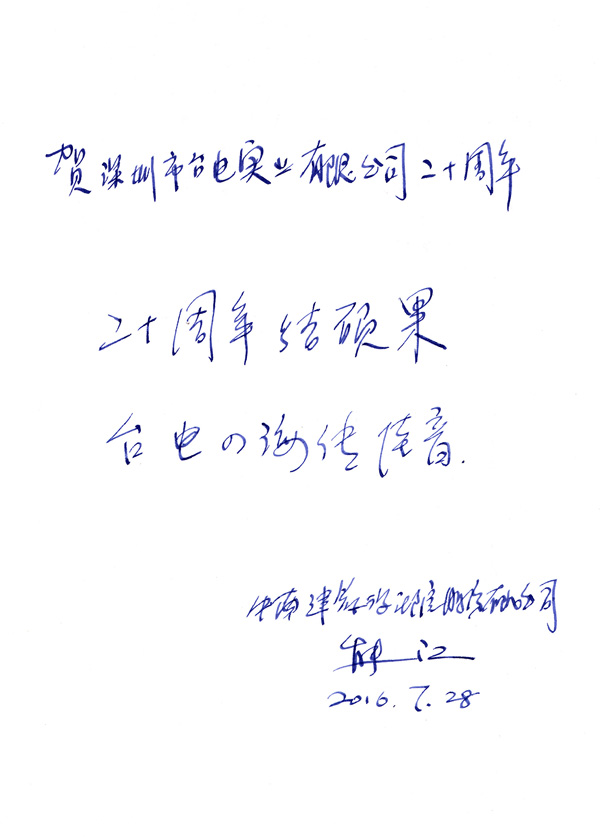 贺深圳市台电实业有限公司二十周年
二十周年结硕果
台电四海传佳音.
中南建筑设计院股份有限公司
江
2016.7.28